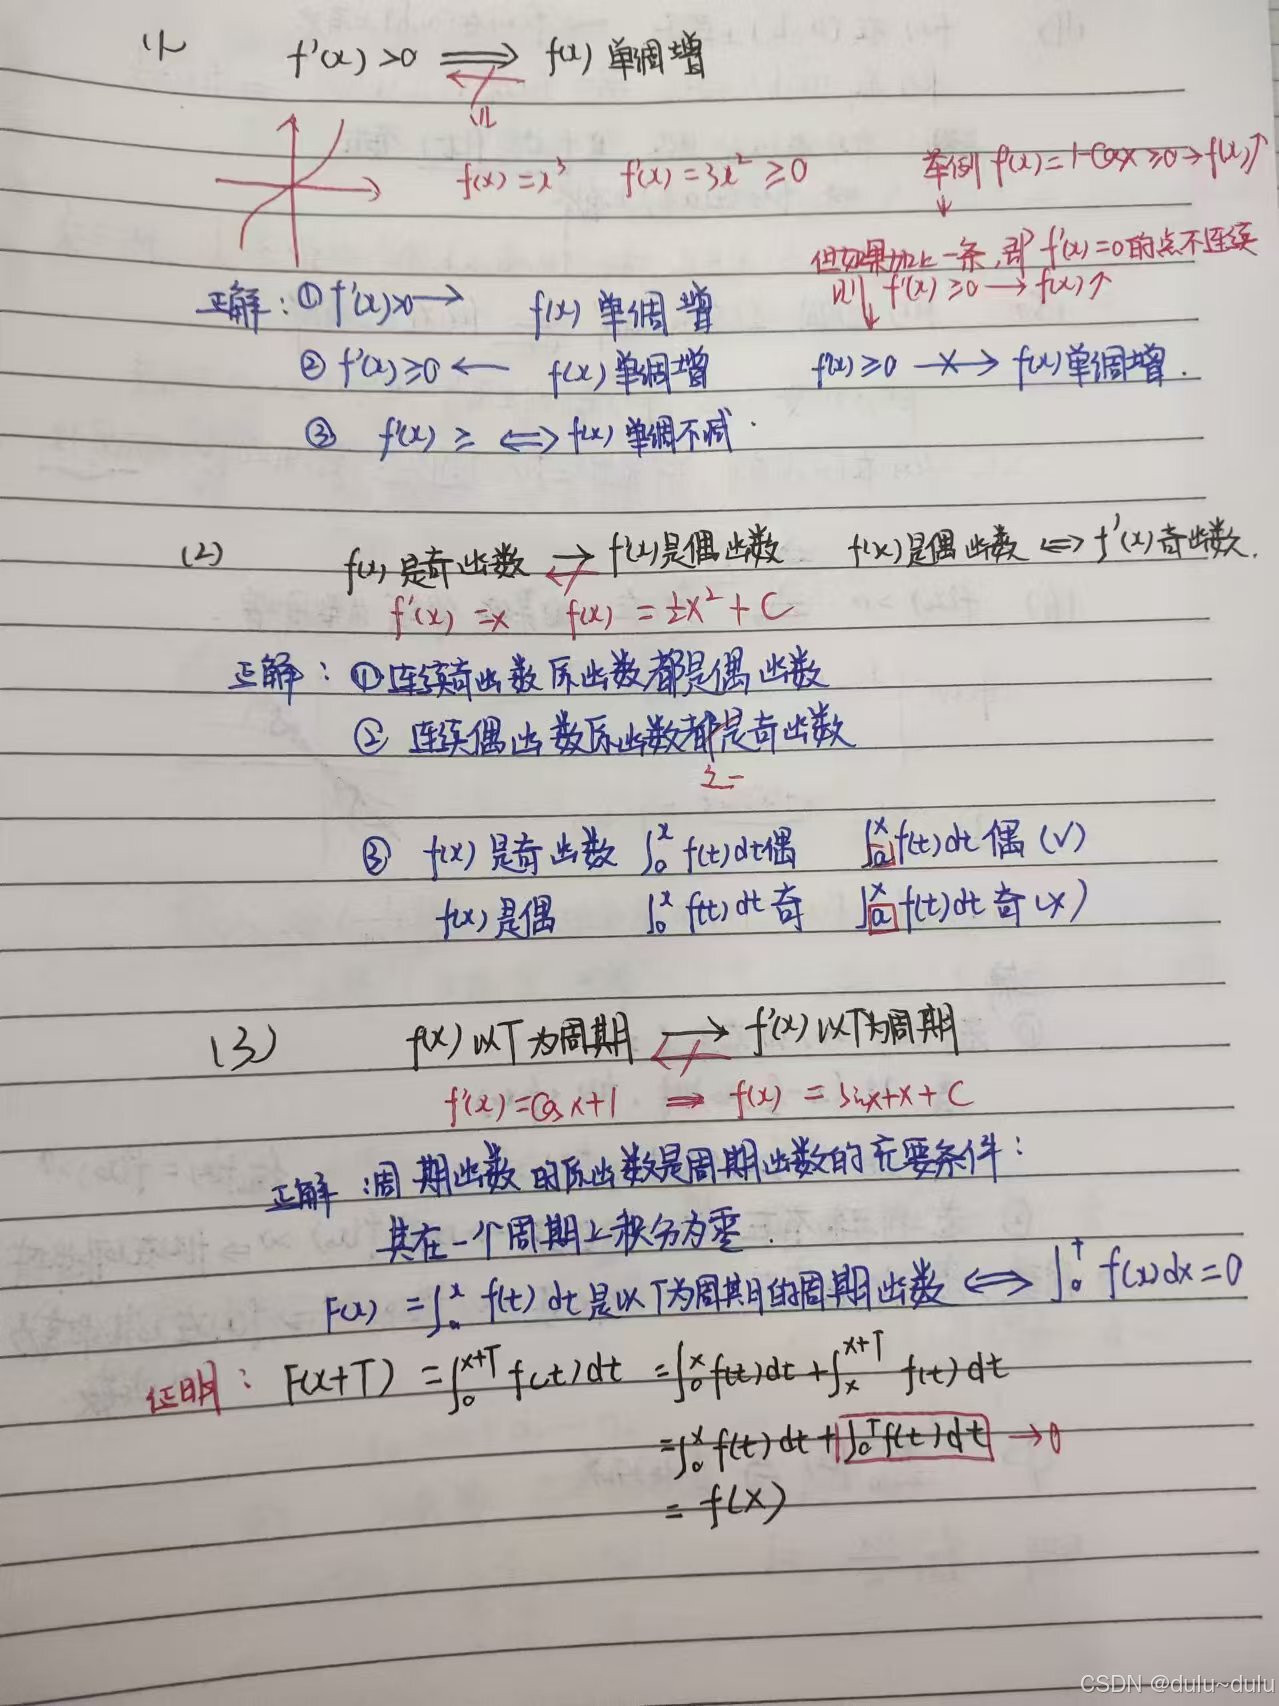 (1) f'(x)>0 ⟹ f(x) 单调增
f(x)=x³ f'(x)=3x²≥0 举例 f'(x)=1-cosx≥0→f(x)↑
但如果加上一条,即 f'(x)=0的点不连续
则 f'(x)≥0→f(x)↑
正解:① f'(x)>0 → f(x) 单调增
② f'(x)≥0 ← f(x)单调增 f'(x)≥0 -×→ f(x)单调增.
③ f'(x)≥ ⟺ f(x)单调不减.
(2) f(x)是奇函数 → f'(x)是偶函数 f(x)是偶函数 ⟺ f'(x)奇函数.
f'(x)=x f(x)=½x²+C
正解:①连续奇函数原函数都是偶函数
② 连续偶函数原函数都是奇函数
之一
③ f(x)是奇函数 ∫₀ˣ f(t)dt偶 ∫ₐˣ f(t)dt偶(√)
f(x)是偶 ∫₀ˣ f(t)dt奇 ∫ₐˣ f(t)dt奇(×)
(3) f(x)以T为周期 → f'(x)以T为周期
f'(x)=cosx+1 ⟹ f(x)=sinx+x+C
正解:周期函数的原函数是周期函数的充要条件:
其在一个周期上积分为零.
F(x)=∫₀ˣ f(t)dt是以T为周期的周期函数 ⟺ ∫₀ᵀ f(x)dx=0
证明:F(x+T)=∫₀ˣ⁺ᵀ f(t)dt =∫₀ˣ f(t)dt+∫ₓˣ⁺ᵀ f(t)dt
=∫₀ˣ f(t)dt+∫₀ᵀ f(t)dt →0
= f(x)
CSDN @dulu~dulu